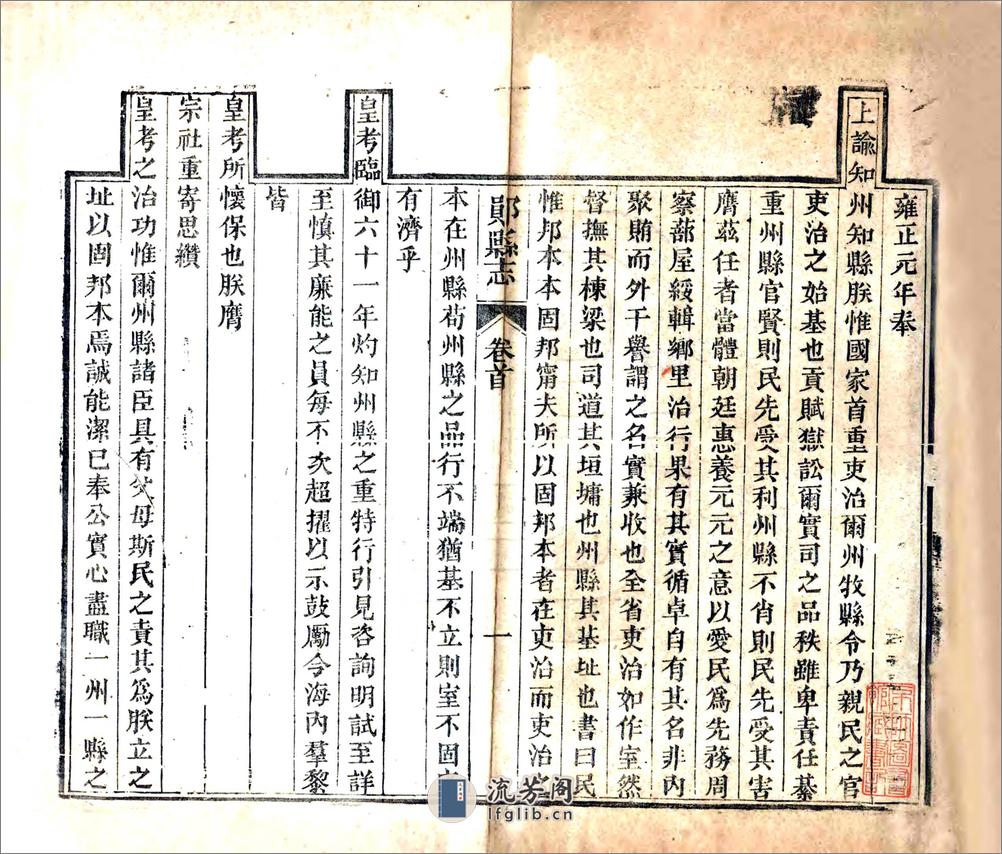 雍正元年奉
上諭知州知縣朕惟國家首重吏治爾州牧縣令乃親民之官
吏治之始基也貢賦獄訟爾實司之品秩雖卑責任綦
重州縣官賢則民先受其利州縣不肖則民先受其害
膺茲任者當體朝廷惠養元元之意以愛民爲先務周
察蔀屋綏輯鄉里治行果有其實循卓自有其名非內
聚賄而外干譽謂之名實兼收也全省吏治如作室然
督撫其棟梁也司道其垣墉也州縣其基址也書曰民
惟邦本本固邦甯夫所以固邦本者在吏治而吏治之
鄖縣志
卷首
一
本在州縣苟州縣之品行不端猶基不立則室不固
有濟乎
皇考臨御六十一年灼知州縣之重特行引見咨詢明試至詳
至慎其廉能之員每不次超擢以示鼓勵今海內羣黎
皆
皇考所懷保也朕膺
宗社重寄思纘
皇考之治功惟爾州縣諸臣具有父母斯民之責其爲朕立之
址以固邦本焉誠能潔已奉公實心盡職一州一縣之
流芳閣
lfglib.cn